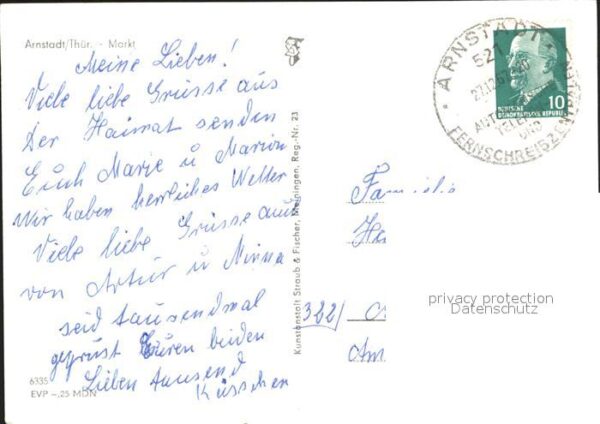 Arnstadt/Thür. - Markt
Meine Lieben!
Viele liebe Grüsse aus
Der Haimat senden
Euch Marie u Marion
Wir haben herrliches Wetter
Viele liebe Grüsse aus
von Artur u Minna
seid tausendmal
geprüst Euren beiden
Lieben tausend
Küsschen
6335
EVP -,25 MDN
Kunstanstalt Straub & Fischer, Meiningen, Reg.-Nr. 23
ARNSTADT
521
27.12.67
FERNSCHREIBZENTREN
10
DEUTSCHE
DEMOKRATISCHE REPUBLIK
Familie
322/
Am
privacy protection
Datenschutz